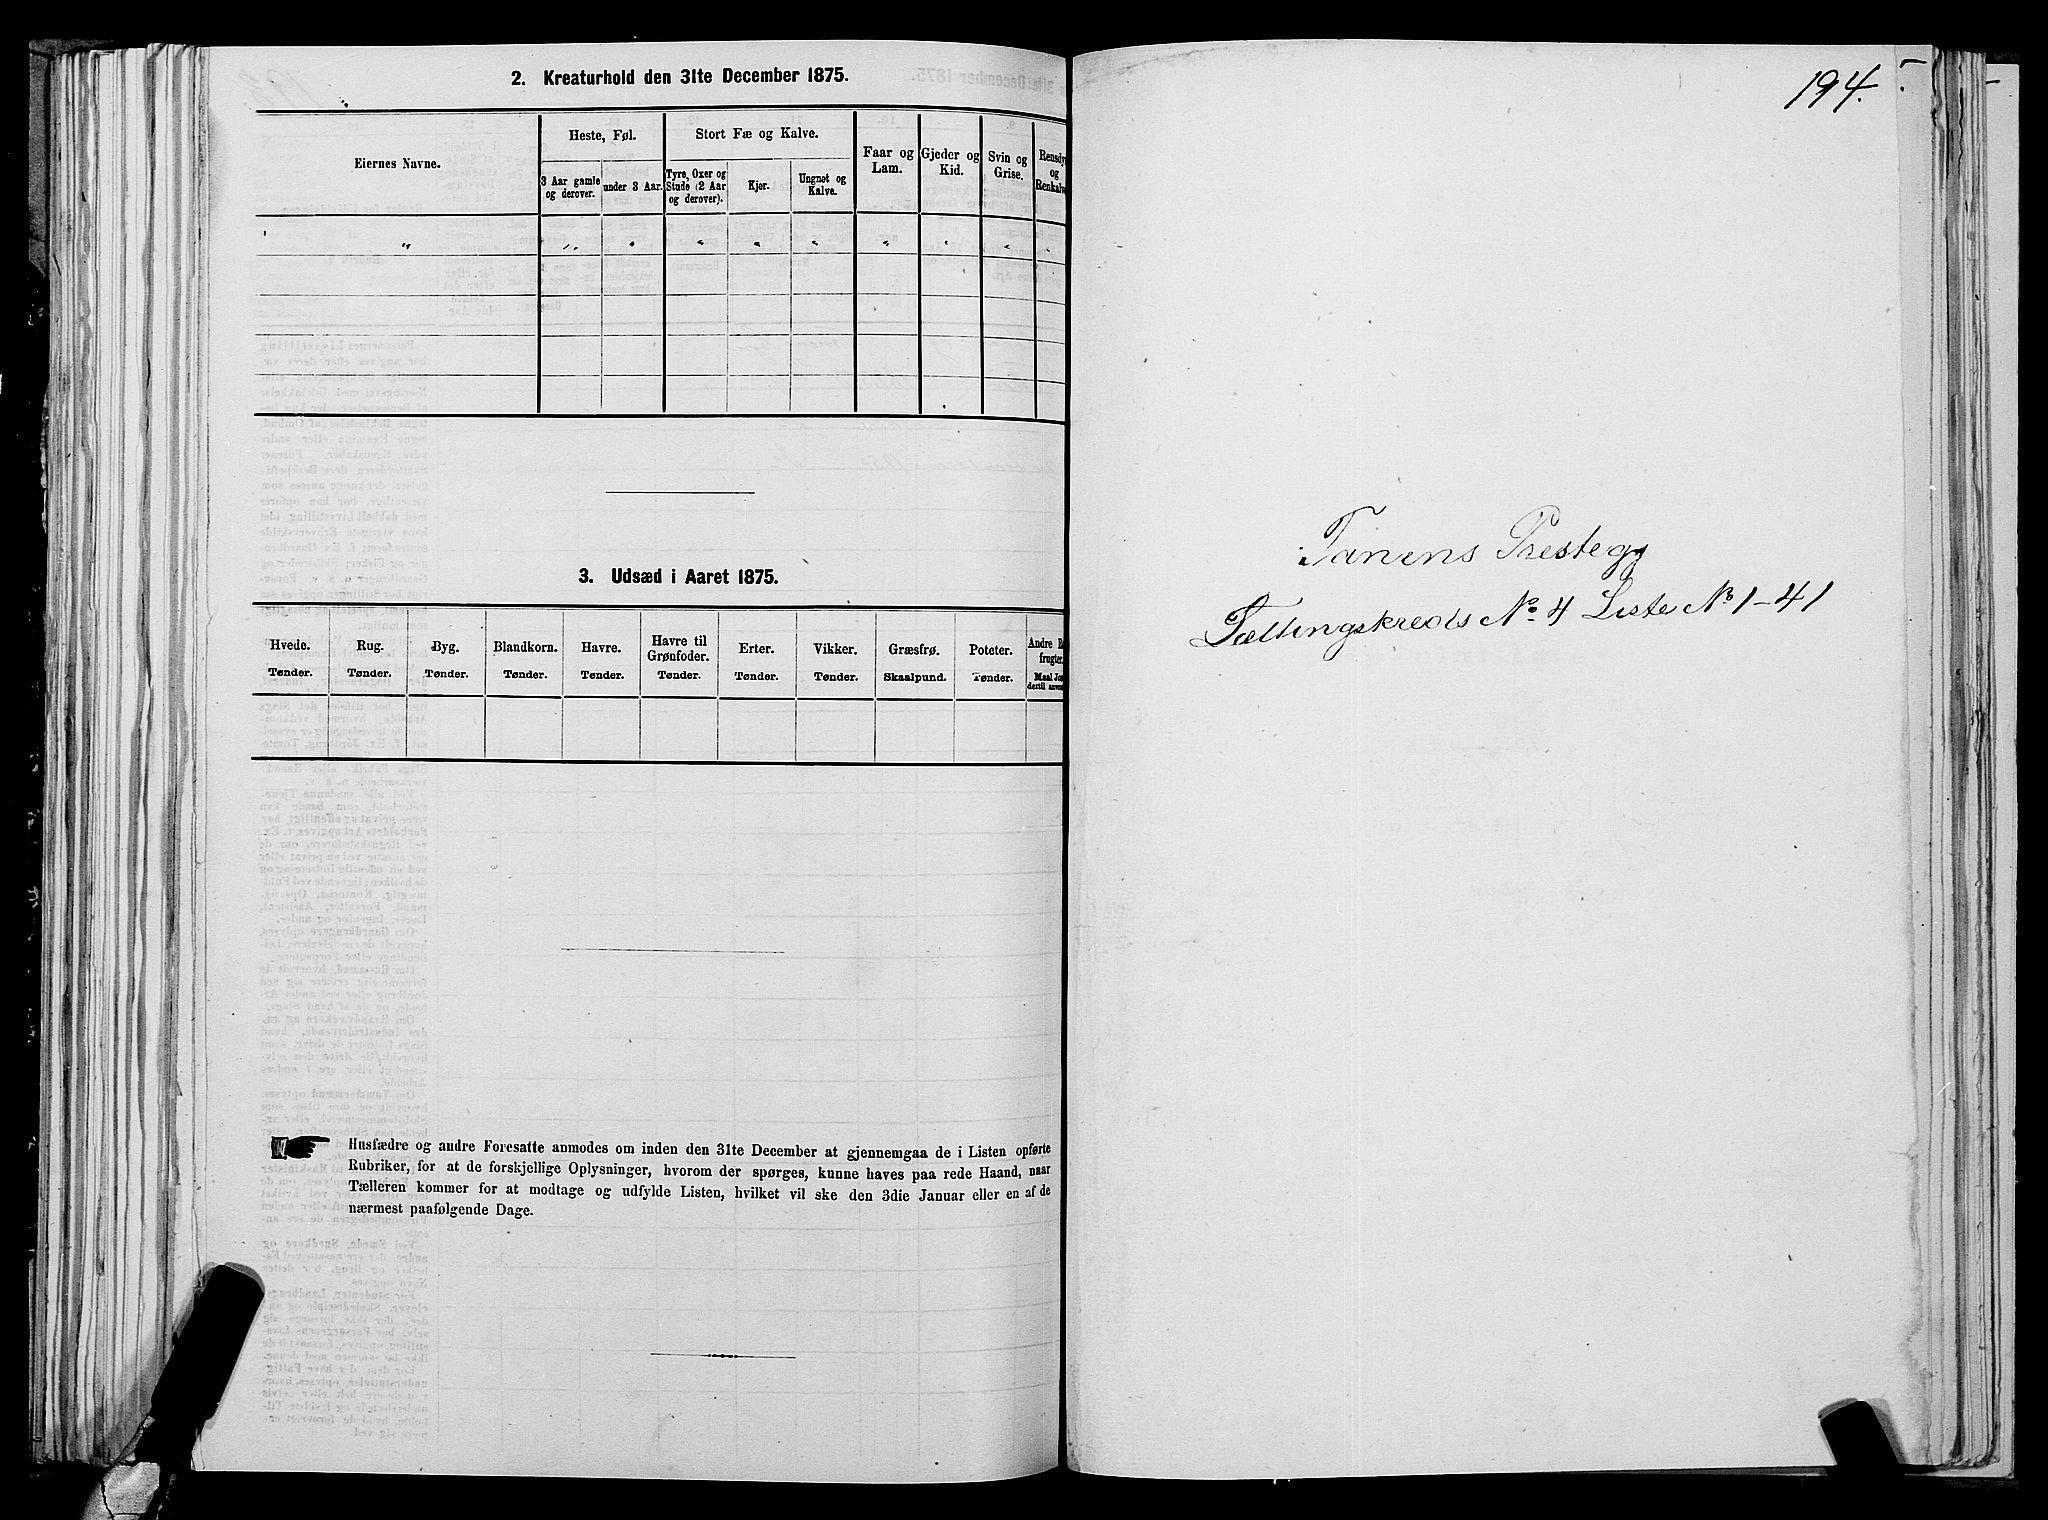 2. Kreaturhold den 31te December 1875.
Eiernes Navne.
Heste, Føl.
3 Aar gamle og derover.
under 3 Aar.
Stort Fæ og Kalve.
Tyre, Oxer og Stude (2 Aar og derover).
Kjør.
Ungnøt og Kalve.
Faar og Lam.
Gjeder og Kid.
Svin og Grise.
Rensdy
og
Renkalve
" " " " " " " " " "
3. Udsæd i Aaret 1875.
Hvede. Rug. Byg. Blandkorn. Havre. Havre til Grønfoder. Erter. Vikker. Græsfrø. Poteter. Andre R
frugter.
Tønder. Tønder. Tønder. Tønder. Tønder. Tønder. Tønder. Tønder. Skaalpund. Tønder. Maal Jo
dertil anven
Husfædre og andre Foresatte anmodes om inden den 31te December at gjennemgaa de i Listen opførte
Rubriker, for at de forskjellige Oplysninger, hvorom der spørges, kunne haves paa rede Haand, naar
Tælleren kommer for at modtage og udfylde Listen, hvilket vil ske den 3die Januar eller en af de
nærmest paafølgende Dage.
194.
Tanens Prestegj
Tællingskreds No. 4 Liste No 1-41